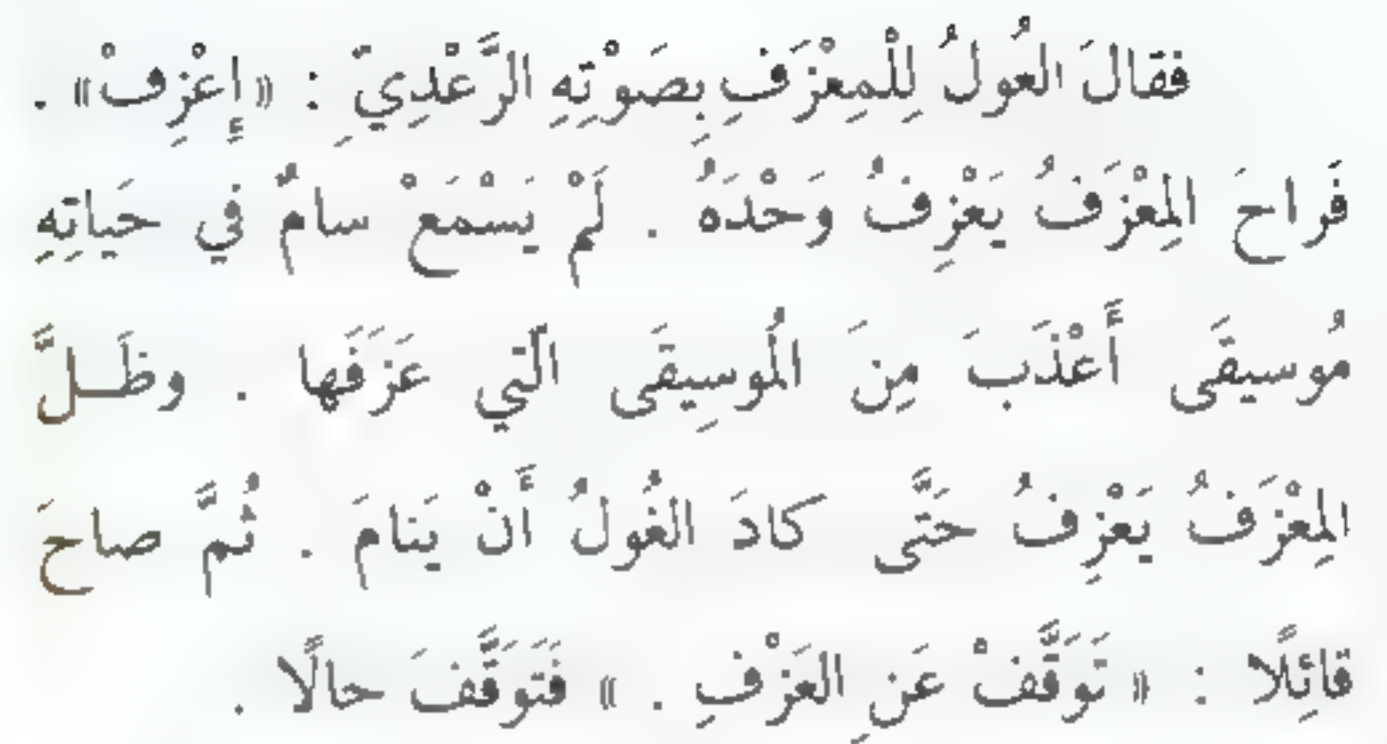 فقالَ الغُولُ لِلْمِعْزَفِ بِصَوْتِهِ الرَّعْدِيِّ : « إِعْزِفْ » .
فَراحَ المِعْزَفُ يَعْزِفُ وَحْدَهُ . لَمْ يَسْمَعْ سامٌ في حَياتِهِ
مُوسيقَى أَعْذَبَ مِنَ المُوسِيقَى الّتي عَزَفَها . وظَلَّ
المِعْزَفُ يَعْزِفُ حَتَّى كادَ الغُولُ أَنْ يَنامَ . ثُمَّ صاحَ
قائِلًا : « تَوَقَّفْ عَنِ العَزْفِ . » فَتَوَقَّفَ حالًا .